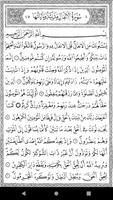 سُورَةُ الْاَنْفَالِ
بِسْمِ اللهِ الرَّحْمٰنِ الرَّحِيمِ
يَسْـَٔلُونَكَ عَنِ الْاَنْفَالِ قُلِ الْاَنْفَالُ لِلّٰهِ وَالرَّسُولِ فَاتَّقُوا
اللهَ وَاَصْلِحُوا ذَاتَ بَيْنِكُمْ وَاَطِيعُوا اللهَ وَرَسُولَهُ اِنْ
كُنْتُمْ مُؤْمِنِينَ اِنَّمَا الْمُؤْمِنُونَ الَّذِينَ اِذَا ذُكِرَ اللهُ
وَجِلَتْ قُلُوبُهُمْ وَاِذَا تُلِيَتْ عَلَيْهِمْ اٰيَاتُهُ زَادَتْهُمْ اِيمَانًا
وَعَلٰى رَبِّهِمْ يَتَوَكَّلُونَ الَّذِينَ يُقِيمُونَ الصَّلٰوةَ وَمِمَّا
رَزَقْنَاهُمْ يُنْفِقُونَ اُولٰئِكَ هُمُ الْمُؤْمِنُونَ حَقًّا لَهُمْ
دَرَجَاتٌ عِنْدَ رَبِّهِمْ وَمَغْفِرَةٌ وَرِزْقٌ كَرِيمٌ كَمَا
اَخْرَجَكَ رَبُّكَ مِنْ بَيْتِكَ بِالْحَقِّ وَاِنَّ فَرِيقًا مِنَ الْمُؤْمِنِينَ
لَكَارِهُونَ يُجَادِلُونَكَ فِي الْحَقِّ بَعْدَ مَا تَبَيَّنَ كَاَنَّمَا
يُسَاقُونَ اِلَى الْمَوْتِ وَهُمْ يَنْظُرُونَ وَاِذْ يَعِدُكُمُ اللهُ
اِحْدَى الطَّائِفَتَيْنِ اَنَّهَا لَكُمْ وَتَوَدُّونَ اَنَّ غَيْرَ ذَاتِ الشَّوْكَةِ
تَكُونُ لَكُمْ وَيُرِيدُ اللهُ اَنْ يُحِقَّ الْحَقَّ بِكَلِمَاتِهِ وَيَقْطَعَ
دَابِرَ الْكَافِرِينَ لِيُحِقَّ الْحَقَّ وَيُبْطِلَ الْبَاطِلَ وَلَوْ كَرِهَ الْمُجْرِمُونَ